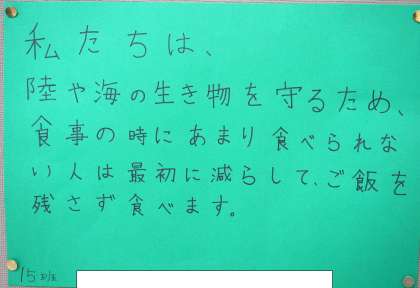 私たちは、
陸や海の生き物を守るため、
食事の時にあまり食べられな
い人は最初に減らして、ご飯を
残さず食べます。
15班